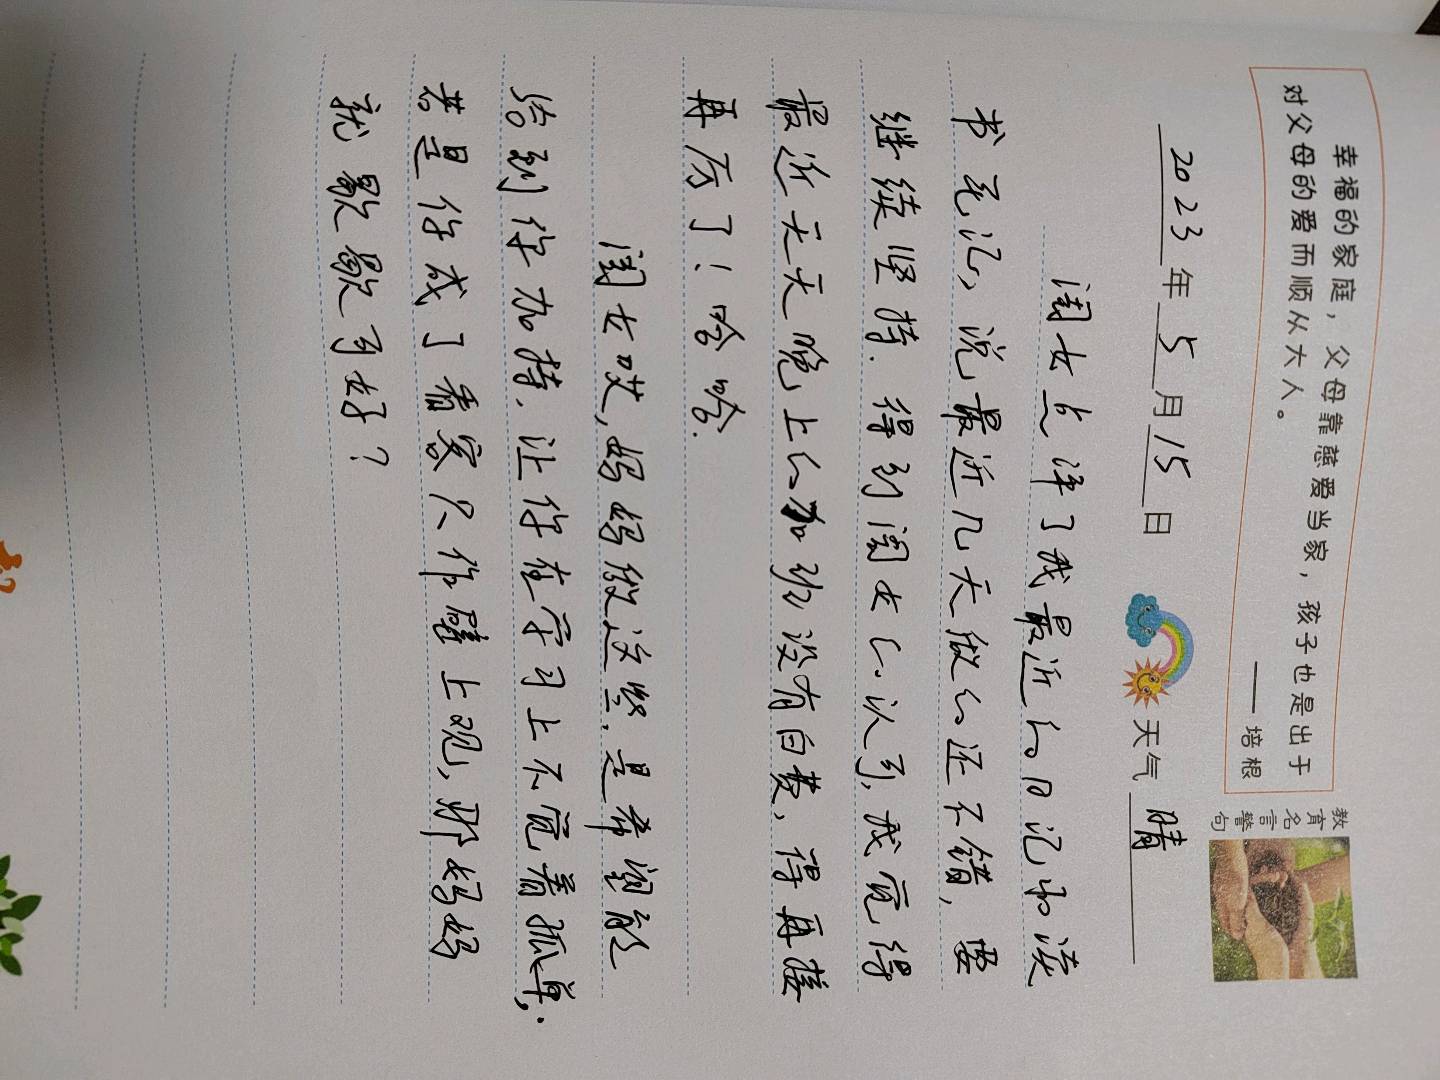 幸福的家庭，父母靠慈爱当家，孩子也是出于
对父母的爱而顺从大人。
——培根
教育名言警句
2023年5月15日 天气 晴
闺女点评了我最近的日记和读
书笔记，说最近几天做的还不错，要
继续坚持.得到闺女的认可,我觉得
最近天天晚上的加班没有白费，得再接
再厉了！哈哈.
闺女哎,妈妈做这些，是希望能
给到你加持，让你在学习上不觉着孤单,
若是你成了看客只作壁上观，那妈妈
就歇歇可好？